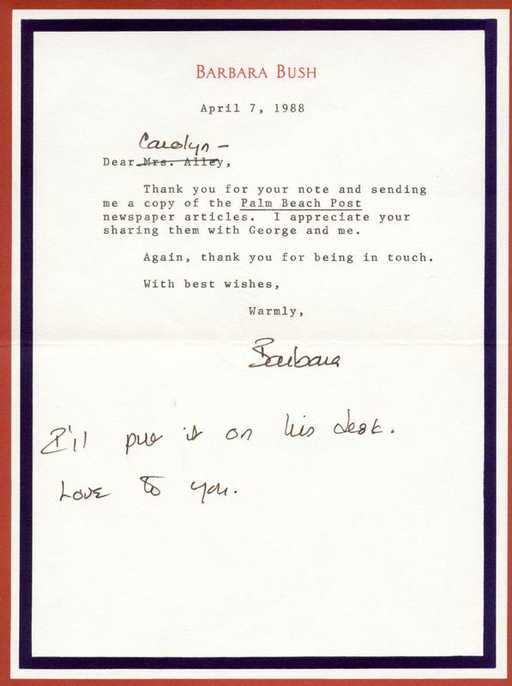 BARBARA BUSH
April 7, 1988
Carolyn –
Dear Mrs. Alley,
Thank you for your note and sending
me a copy of the Palm Beach Post
newspaper articles. I appreciate your
sharing them with George and me.
Again, thank you for being in touch.
With best wishes,
Warmly,
Barbara
I'll put it on his desk.
Love to you.